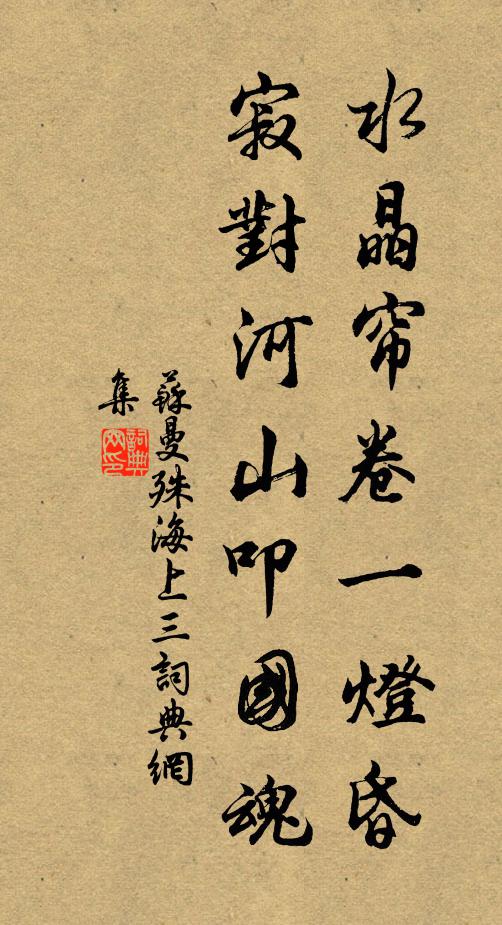 水晶帘卷一燈昏
寂對河山叩國魂
蘇曼殊海上三詞典網
集
詞典
网印